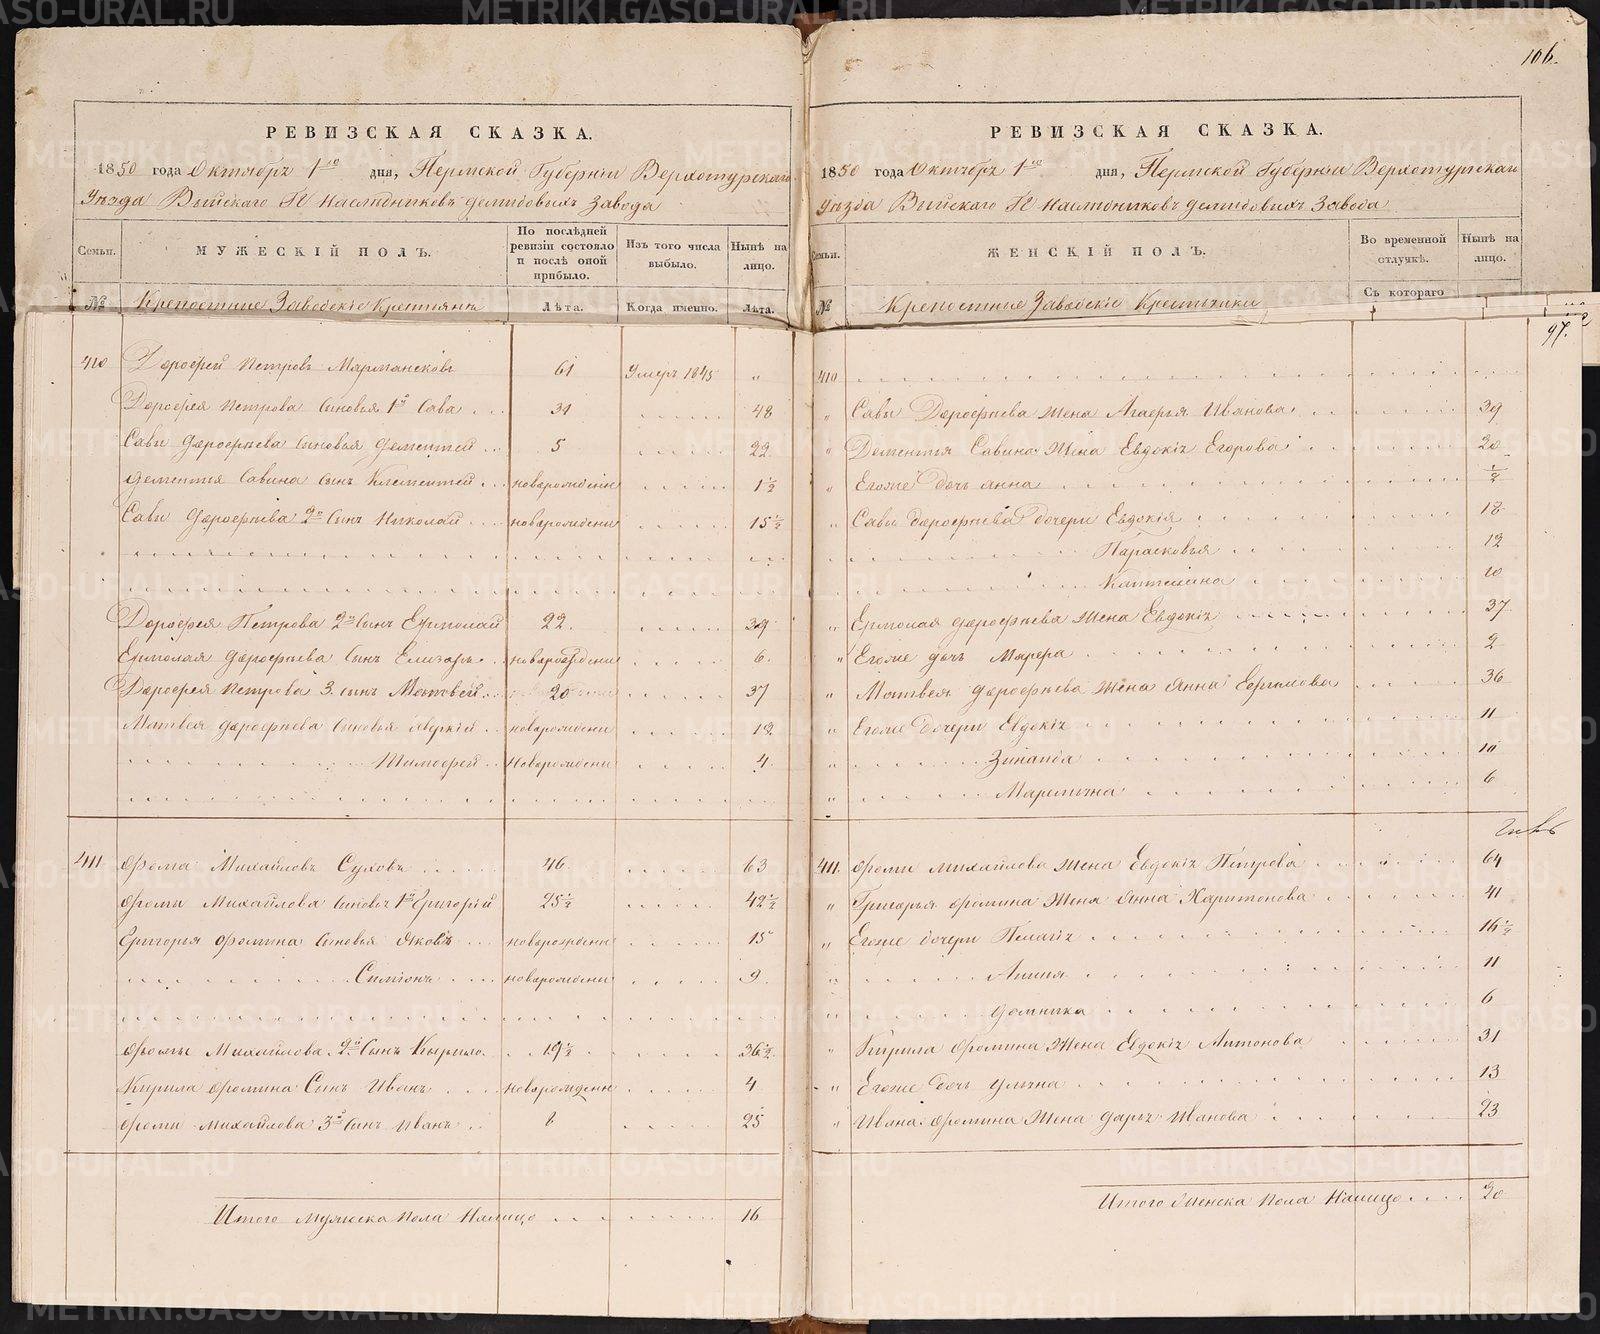 106.
РЕВИЗСКАЯ СКАЗКА.
1850 года Октября 1го дня, Пермской Губернiи Верхотурскаго
Уѣзда Выйскаго Гг Наслѣдниковъ Демидовыхъ Завода
Семьи.
МУЖЕСКIЙ ПОЛЪ.
По послѣдней ревизiи состояло и послѣ оной прибыло.
Изъ того числа выбыло.
Нынѣ на лицо.
№
Крепостные Заводскiе Крестьяне
Лѣта.
Когда именно.
Лѣта.
410 Дорофей Петровъ Мармансковъ 61 Умеръ 1845 "
Дорофея Петрова сыновья 1й Сава 31 48
Савы Дорофѣева сыновья Дементей 5 22
Дементья Савина сынъ Клементей новорожденн 1½
Савы Дорофѣева 2й сынъ Николай новорожденн 15½
Дорофея Петрова 2й сынъ Ермолай 22 39
Ермолая Дорофѣева сынъ Елизаръ новорожденн 6
Дорофея Петрова 3. сынъ Матвей 20 37
Матвея Дорофѣева сыновья Аверкiй новорожденн 12
Тимофей новорожденн 4
411 Фома Михайловъ Суховъ 46 63
Фомы Михайлова сыновья 1й Григорiй 25½ 42½
Григорья Фомина сыновья Яковъ новорожденн 15
Симiонъ новорожденн 9
Фомы Михайлова 2й сынъ Кырило 19½ 36½
Кирила Фомина Сынъ Иванъ новорожденн 4
Фомы Михайлова 3й сынъ Иванъ 8 25
Итого Мужеска Пола Налицо 16
РЕВИЗСКАЯ СКАЗКА.
1850 года Октября 1го дня, Пермской Губернiи Верхотурскаго
Уѣзда Выйскаго Гг Наслѣдниковъ Демидовыхъ Завода
Семьи.
ЖЕНСКIЙ ПОЛЪ.
Во временной отлучкѣ.
Нынѣ на лицо.
№
Крепостные Заводскiе Крестьянки
Съ котораго
97.
410
" Савы Дорофѣева жена Агафья Иванова 39
" Дементья Савина жена Евдокiя Егорова 20
" Егоже дочь Анна ½
" Савы Дорофѣева дочери Евдокiя 18
Парасковья 12
Каптелина 10
" Ермолая Дорофѣева жена Евдокiя 37
" Егоже дочь Марфа 2
" Матвея Дорофѣева жена Анна Ефимова 36
" Егоже дочери Евдокiя 11
" Зинаида 10
" Маремьяна 6
411. Фомы Михайлова жена Евдокiя Петрова 64
" Григорья Фомина жена Анна Харитонова 41
" Егоже дочери Пелагiя 16½
" Анисия 11
" Домника 6
" Кирила Фомина жена Евдокiя Антонова 31
" Егоже дочь Улияна 13
" Ивана Фомина жена Дарья Иванова 23
Итого Женска Пола Налицо 20
METRIKI.GASO-URAL.RU